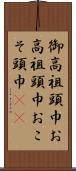 御高祖頭巾お
高祖頭巾おこ
そ頭巾